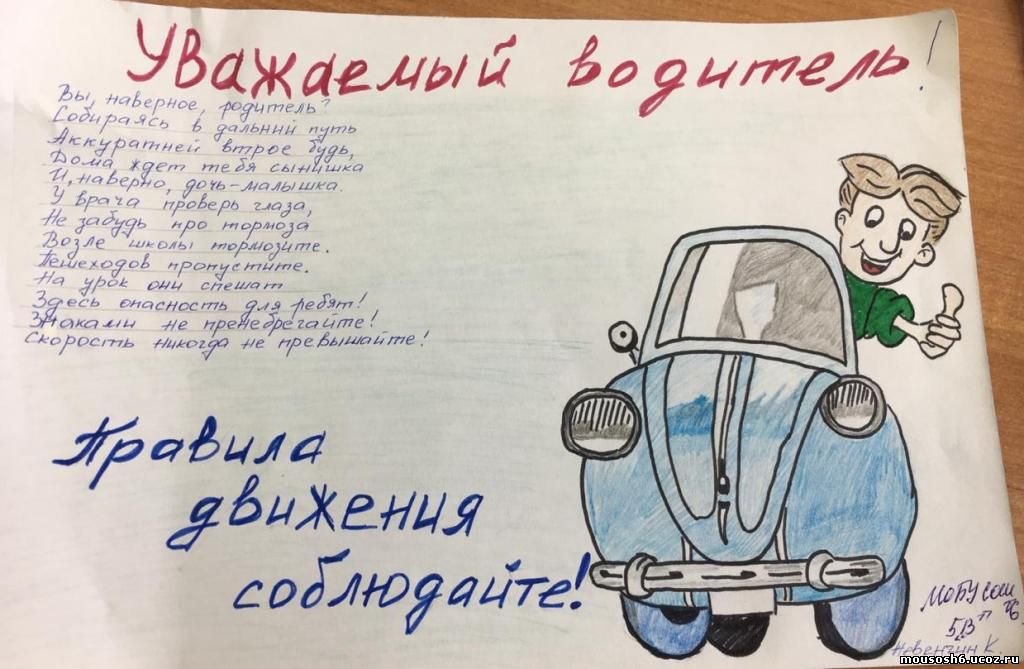 Уважаемый водитель!
Вы, наверное, родитель?
Собираясь в дальний путь
Аккуратней втрое будь,
Дома ждет тебя сынишка
И, наверно, дочь-малышка.
У врача проверь глаза,
Не забудь про тормоза
Возле школы тормозите.
Пешеходов пропустите.
На урок они спешат
Здесь опасность для ребят!
Знаками не пренебрегайте!
Скорость никогда не превышайте!
Правила
движения
соблюдайте!
МОБУ сош
5,В"
К.
mousosh6.ucoz.ru